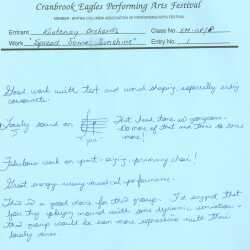 Cranbrook Eagles Performing Arts Festival
MEMBER: BRITISH COLUMBIA ASSOCIATION OF PERFORMING ARTS FESTIVALS
Entrant Kootenay Orchards Class No.
Work "Spread Some Sunshine" Entry No. 1
Good work with text and word shaping especially ending
consonants.
Lovely sound on That blend tones so gorgeous.
Do more of that and tone so sure
more!
Fabulous work on spirit-singing, performing choir!
Great energy using musical performance.
This is a good choice for this group. I'd suggest that
you try singing around with some dynamic variation -
this group would be even more expressive with their
lovely tone.